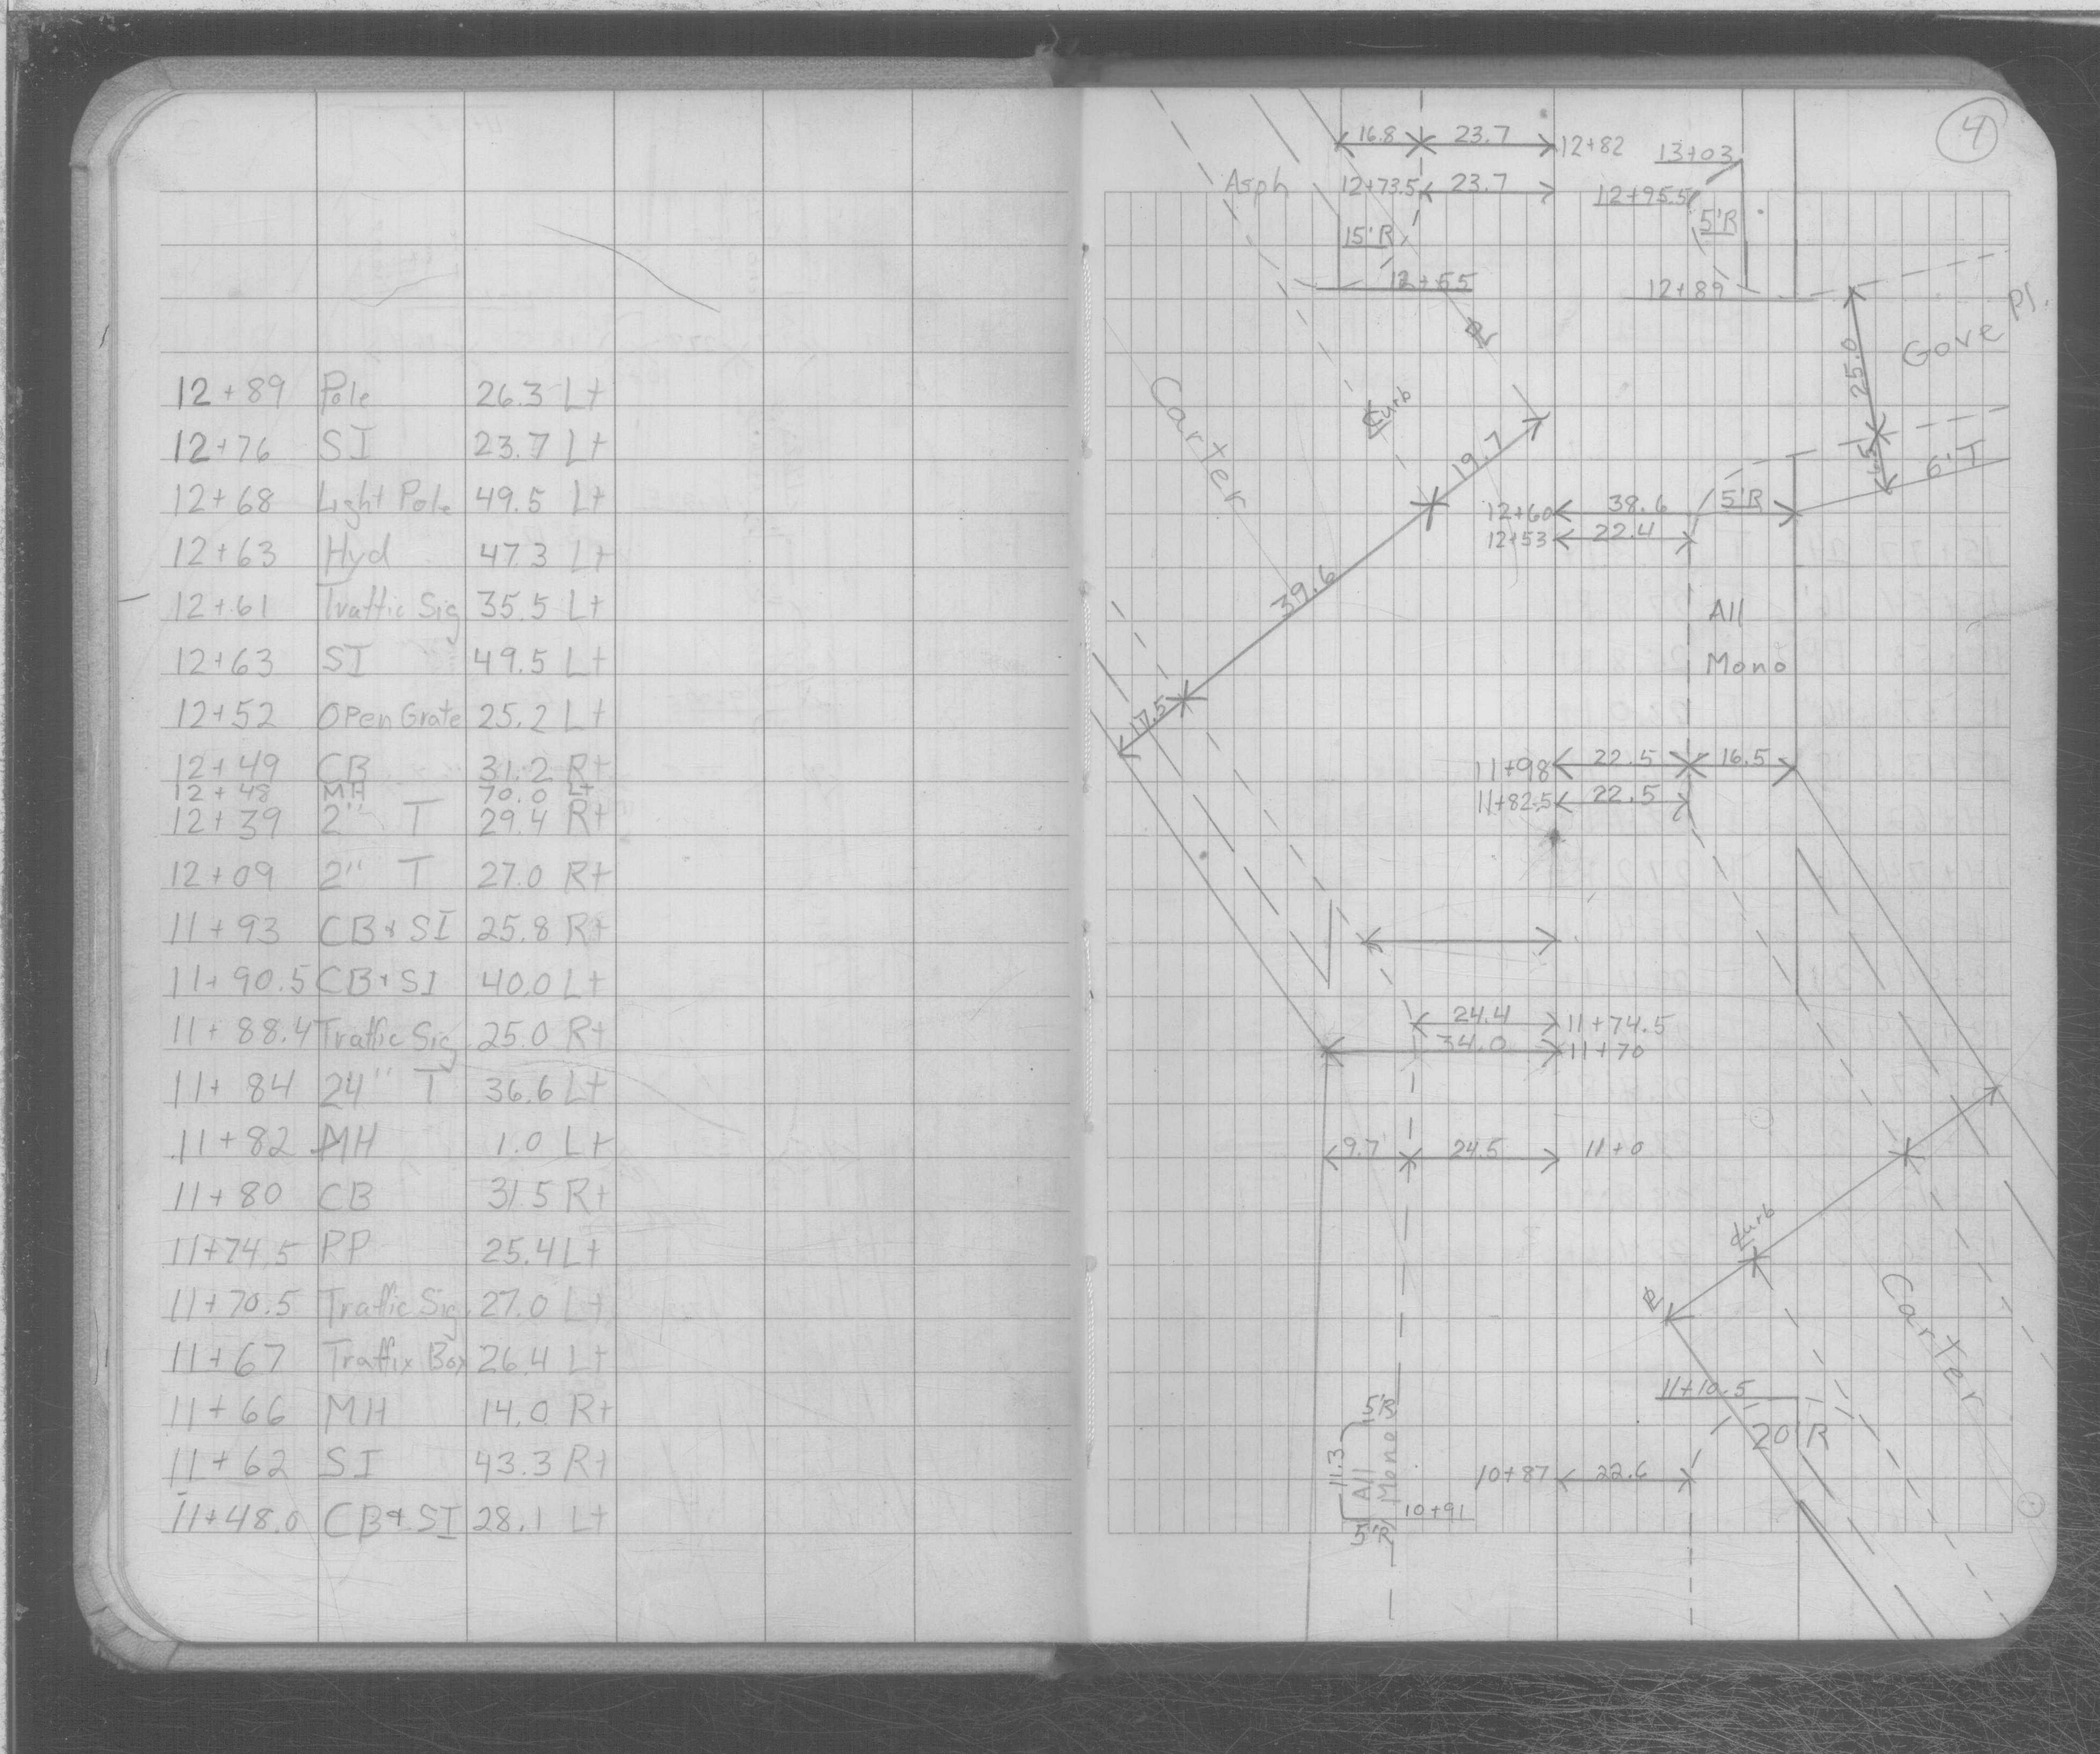 12+89 Pole 26.3 Lt
12+76 SI 23.7 Lt
12+68 Light Pole 49.5 Lt
12+63 Hyd 47.3 Lt
12+61 Traffic Sig 35.5 Lt
12+63 SI 49.5 Lt
12+52 Open Grate 25.2 Lt
12+49 CB 31.2 Rt
12+48 MH 70.0 Lt
12+39 2" T 29.4 Rt
12+09 2" T 27.0 Rt
11+93 CB+SI 25.8 Rt
11+90.5 CB+SI 40.0 Lt
11+88.4 Traffic Sig 25.0 Rt
11+84 24" T 36.6 Lt
11+82 MH 1.0 Lt
11+80 CB 31.5 Rt
11+74.5 PP 25.4 Lt
11+70.5 Traffic Sig. 27.0 Lt
11+67 Traffix Box 26.4 Lt
11+66 MH 14.0 Rt
11+62 SI 43.3 Rt
11+48.0 CB+SI 28.1 Lt
4
16.8 23.7 12+82 13+03
Asph 12+73.5 23.7 12+95.5
15'R 5'R
12+55 12+89
Gove Pl.
25.0
Carter
Curb
19.7
6'T
12+60 38.6 5'R
12+53 22.4
39.6
All
Mono
17.5
11+98 22.5 16.5
11+82.5 22.5
24.4 11+74.5
34.0 11+70
9.7 24.5 11+0
Curb
Carter
11+10.5
20'R
5'R
11.3
All
Mono
10+87 22.6
10+91
5'R